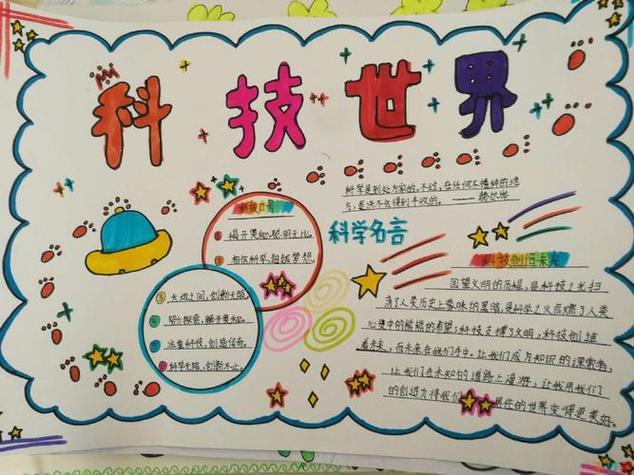 科技世界
科学是到处为家的,不过,在任何不播种的地
方,是决不会得到丰收的。——赫尔岑
科学名言
科技口号
① 揭开奥秘,聪明无比。
② 相信科学,超越梦想
③ 天地之间,创新无限
④ 努力探索,解开奥秘。
⑤ 注重科技,创造信奇。
科学无限,创新不止。
科技创造未来
回望文明的历程,是科技之光扫
荡了人类历史上蒙昧的黑暗,是科学之火点燃了人类
心灵中的熊熊的希望;科技支撑了文明,科技创造
着未来,而未来在我们手中。让我们成为知识的探索者,
让我们在未知的道路上漫游,让我用我们
的创造力将我们
的世界变得更美好。